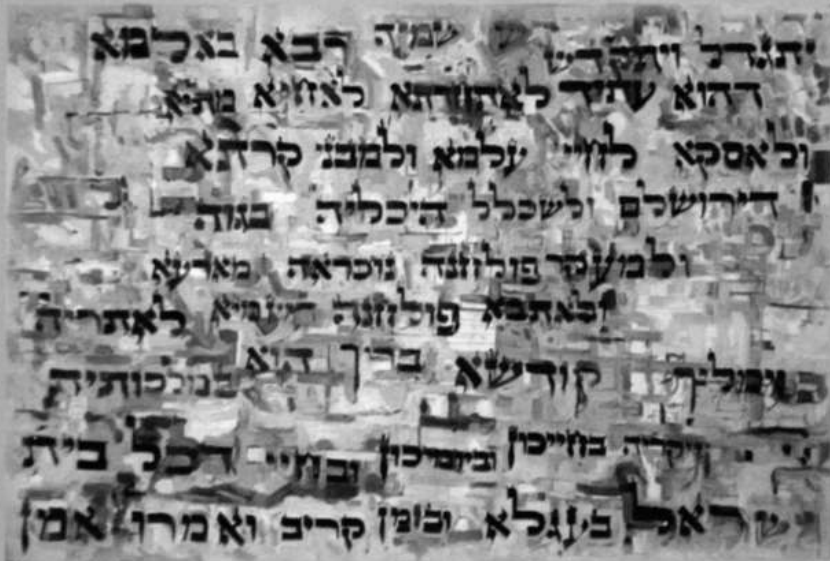 יתגדל ויתקדש שמיה רבא באלמא
דהוא עתיד לאתחדתא לאחיא מתיא
ולאסקא לחיי עלמא ולמבני קרתא
דירושלם ולשכלל היכליה בגוה
ולמעקר פולחנה נוכראה מארעא
ולאתבא פולחנה דשמיא לאתריה
וימליך קודשא בריך הוא במלכותיה
ויקריה בחייכון וביומיכון ובחיי דכל בית
ישראל בעגלא ובזמן קריב ואמרו אמן